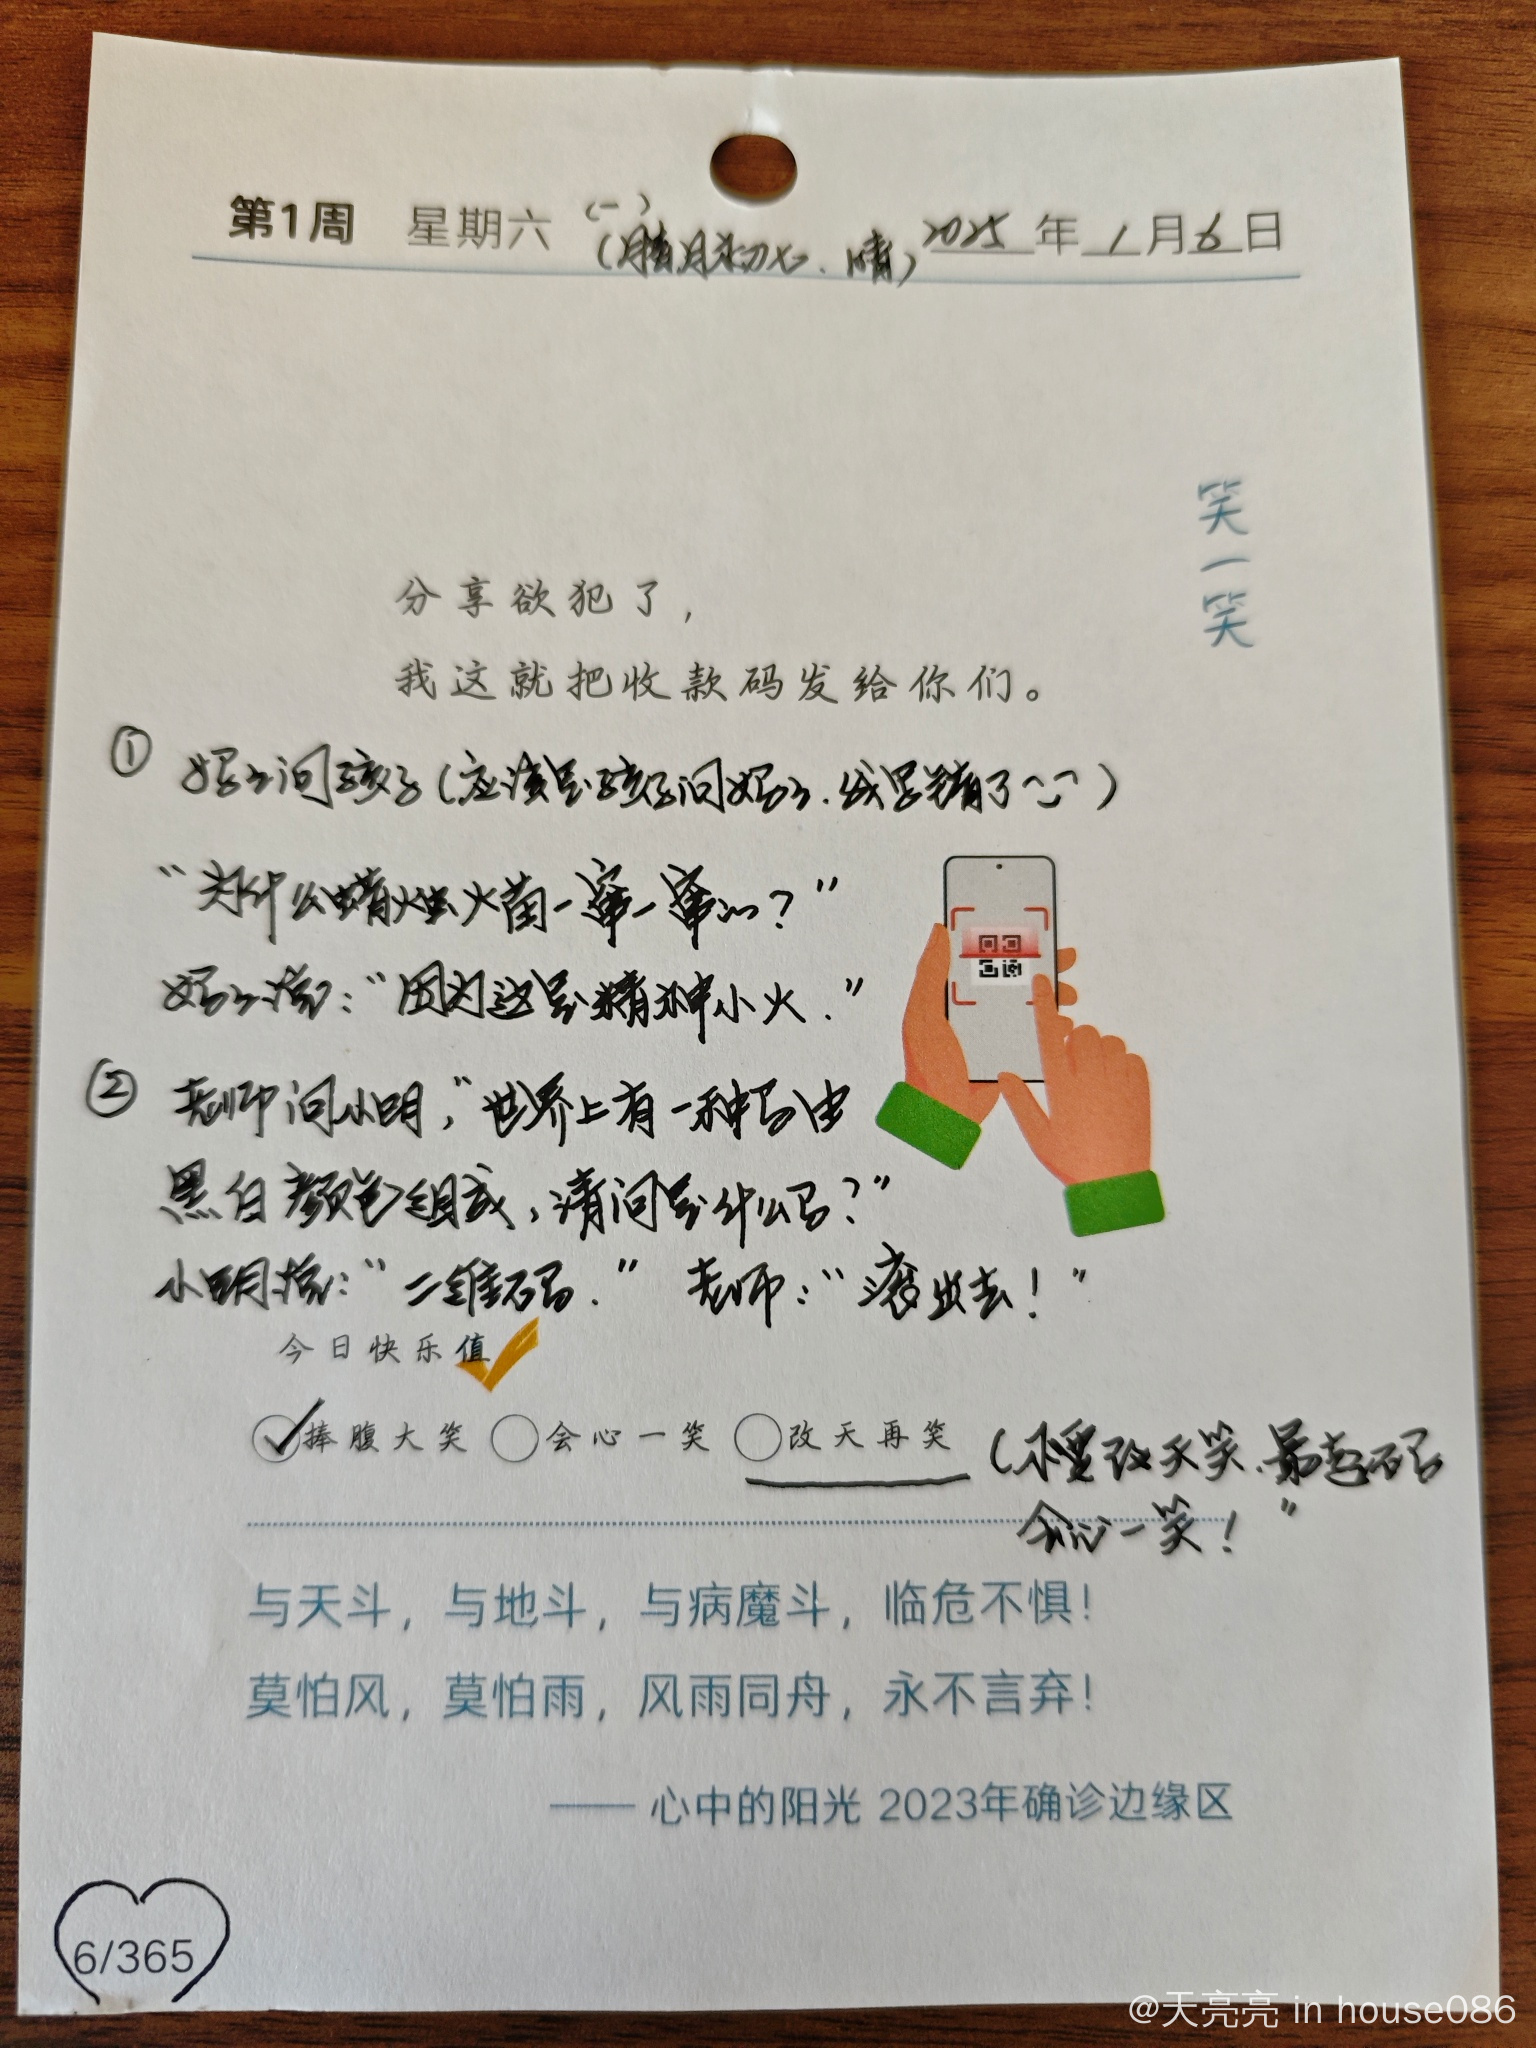 第1周 星期六 (一) (腊月初七、晴) 2025年1月6日
笑一笑
分享欲犯了，
我这就把收款码发给你们。
① 妈妈问孩子(应该是孩子问妈妈.我写错了
“为什么蜡烛火苗一窜一窜的？”
妈妈说：“因为这是精神小火.”
② 老师问小明，“世界上有一种马由
黑白颜色组成，请问是什么马？”
小明说：“二维码.” 老师：“滚出去！”
今日快乐值
捧腹大笑 会心一笑 改天再笑 (不要改天笑.最起码
会心一笑！”
与天斗，与地斗，与病魔斗，临危不惧！
莫怕风，莫怕雨，风雨同舟，永不言弃！
—— 心中的阳光 2023年确诊边缘区
6/365
@天亮亮 in house086